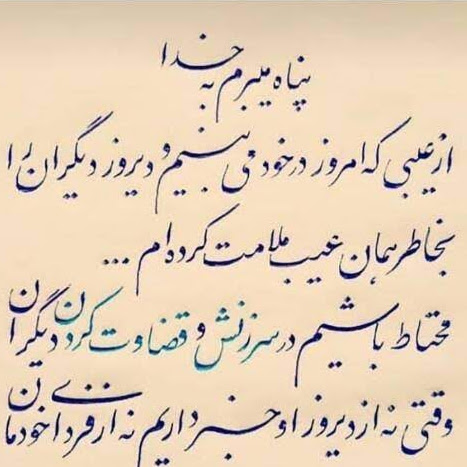 پناه میبرم به خدا
از عیبی که امروز در خود می بینم و دیروز دیگران را
بخاطر همان عیب ملامت کرده ام ...
محتاط باشیم در سرزنش و قضاوت کردن دیگران
وقتی نه از دیروز او خبر داریم نه از فردای خودمان